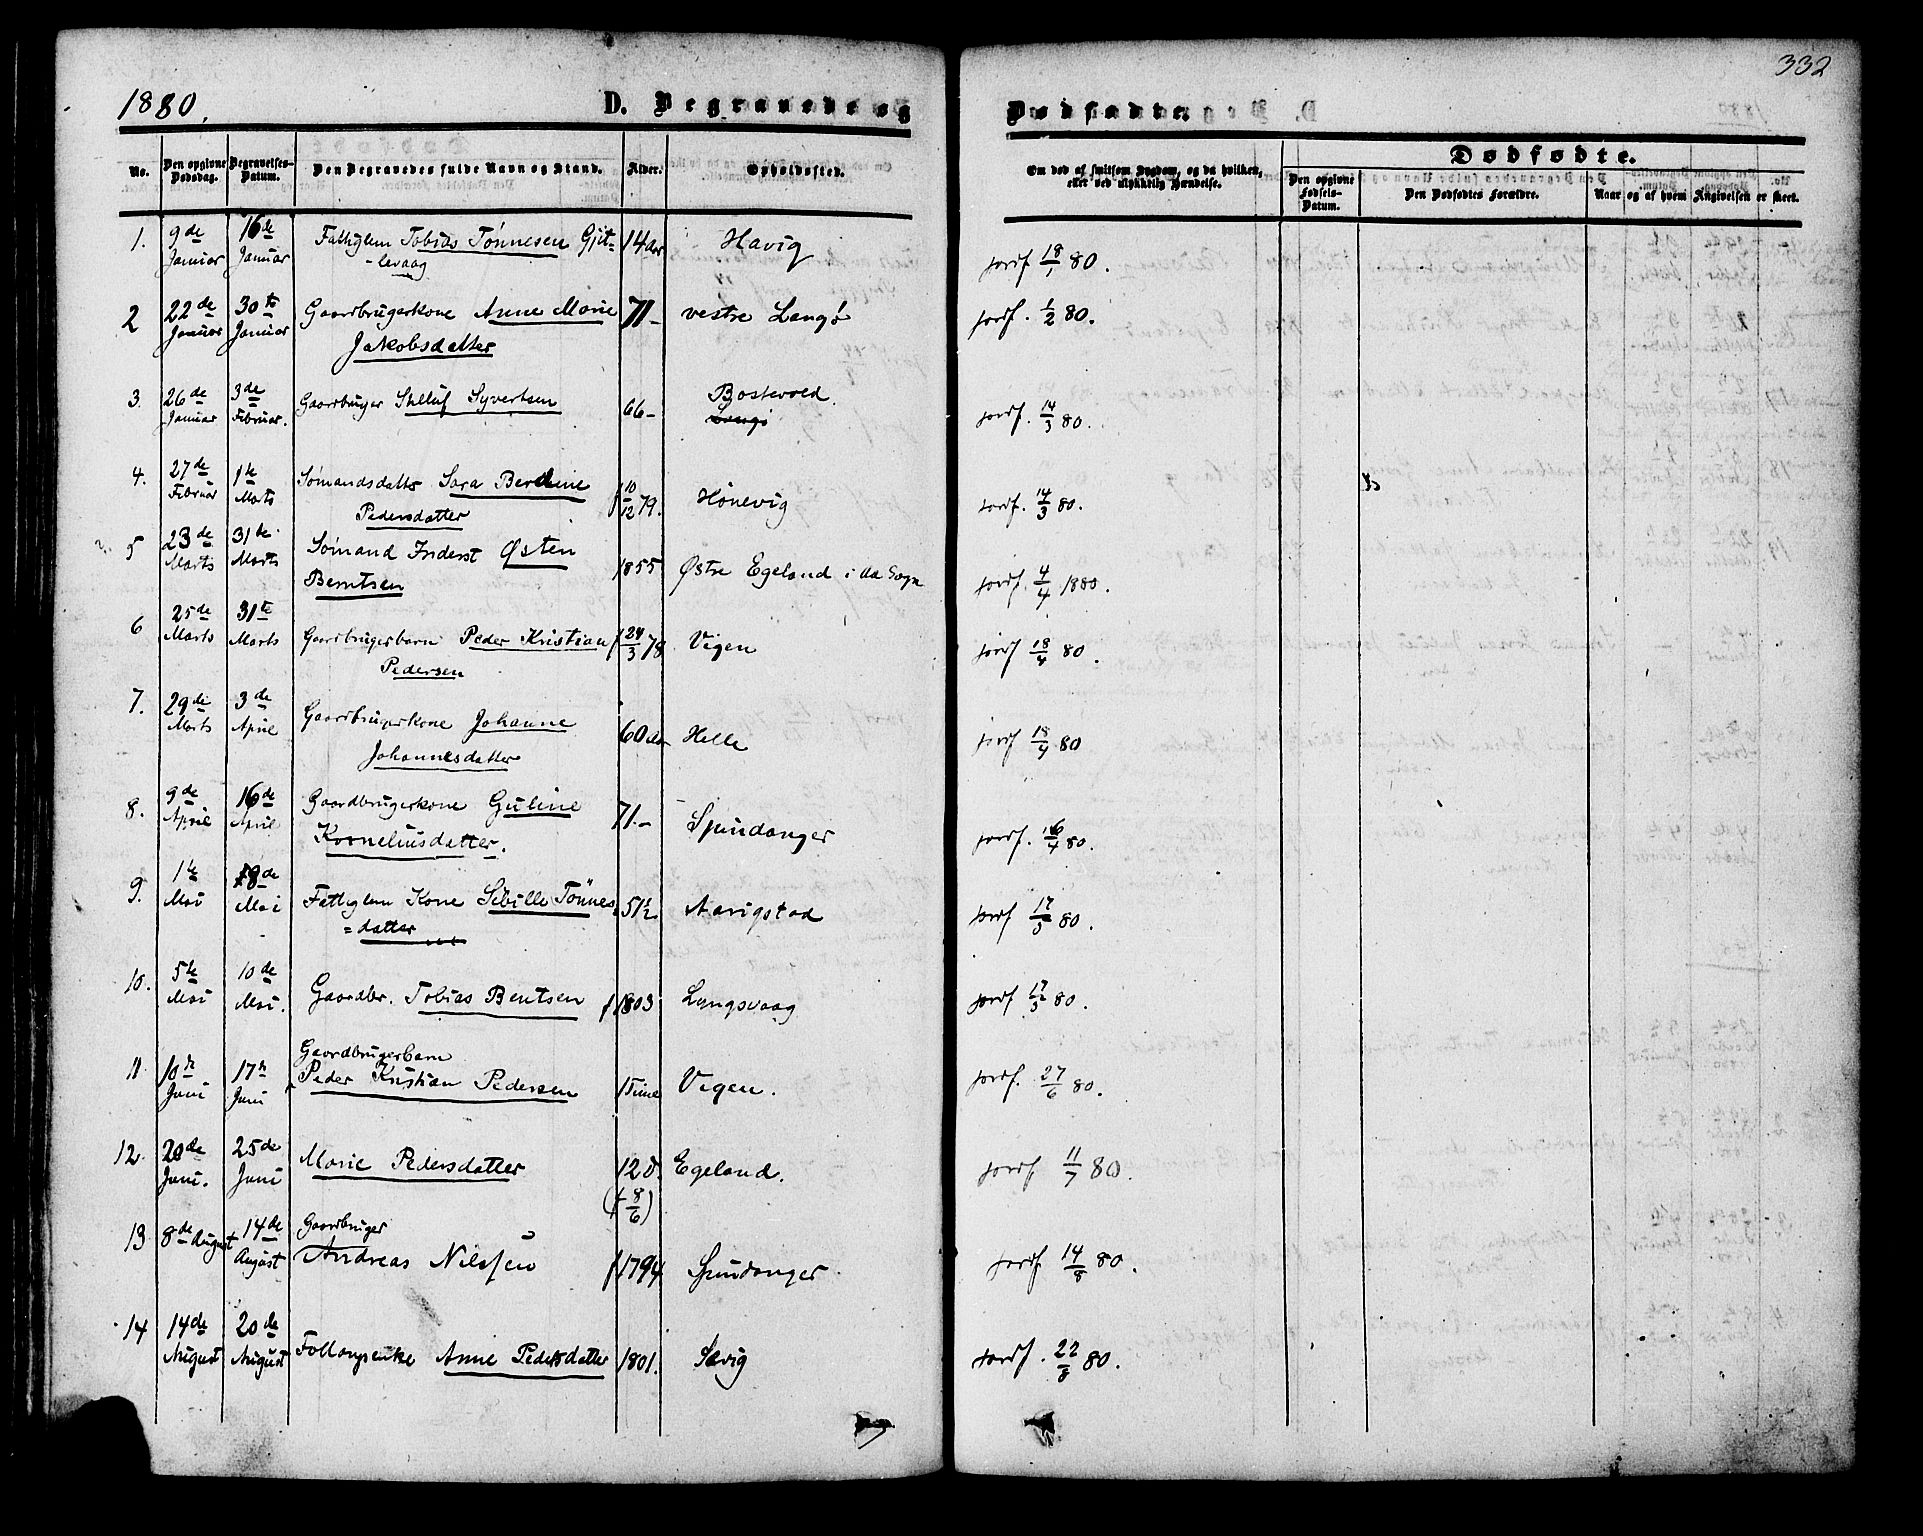 1880.
D. Begravede og
No.
Den opgivne Dødsdag.
Begravelses-Datum.
Den Begravedes fulde Navn og Stand.
Alder.
Opholdssted.
1. 9de Januar 16de Januar Fattiglem Tobias Tønnesen Gjit-
-levaag 14 aar Havig
2 22de Januar 30te Januar Gaardbrugerkone Anne Marie
Jakobsdatter 71 - vestre Langø
3. 26de Januar 3de Februar. Gaardbruger Syvertsen 66 - Bostevold.
Langø
4. 27de Februar 1te Marts Sømandsdatter Sara Berdine
Pedersdatter f 10/12 79. Hønevig
5 23de Marts 31te Marts Sømand Inderst Østen
Berntsen 1855 Østre Egeland i da Sogn
6 25de Marts 31te Marts Gaardbrugerbarn Peder Kristian
Pedersen f 24/3 78 Vigen
7. 29de Marts 3de April Gaardbrugerkone Johanne
Johannesdatter 60 aar Helle
8. 9de April 16de April Gaardbrugerkone Guline
Korneliusdatter. 71. - Spindanger
9. 1te Mai 8de Mai Fattiglem Kone Sibille Tönnes
=datter 51½ Aavigstad
10. 5te Mai 10de Mai. Gaardbr. Tobias Bentsen f 1803 Langsvaag
11. 10de Juni 17de Juni Gaardbrugerbarn
Peder Kristian Pedersen 1 Time Vigen.
12. 20de Juni. 25de Juni Marie Pedersdatter 12 D. Egeland.
(f 8/6)
13 8de August 14de August Gaardbruger
Andreas Nilssen f 1794 Spindanger
14 14de August 20de August Anne Pedersdatter 1801. Sævig
332
Dødfødte.
Om død af smitsom Sygdom, og da hvilken,
eller ved ulykkelig Hændelse.
Dødfødte.
Den opgivne Fødsels-Datum.
Den Dødfødtes Forældre.
Naar og af hvem Angivelsen er skeet.
jordf 18/1 80.
jordf. 1/2 80.
jordf. 14/3 80.
jordf. 14/3 80.
jordf. 4/4 1880.
jordf 18/4 80.
jordf 18/4 80
jordf. 16/4 80.
jordf 17/5 80.
jordf 17/5 80.
jordf. 27/6 80.
jordf 11/7 80.
jordf 14/8 80.
jordf. 22/8 80.